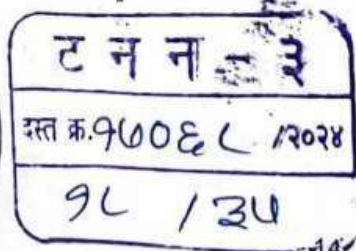 ट न न - ३
दस्त क्र.१७०६८ /२०२४
१८ / ३५